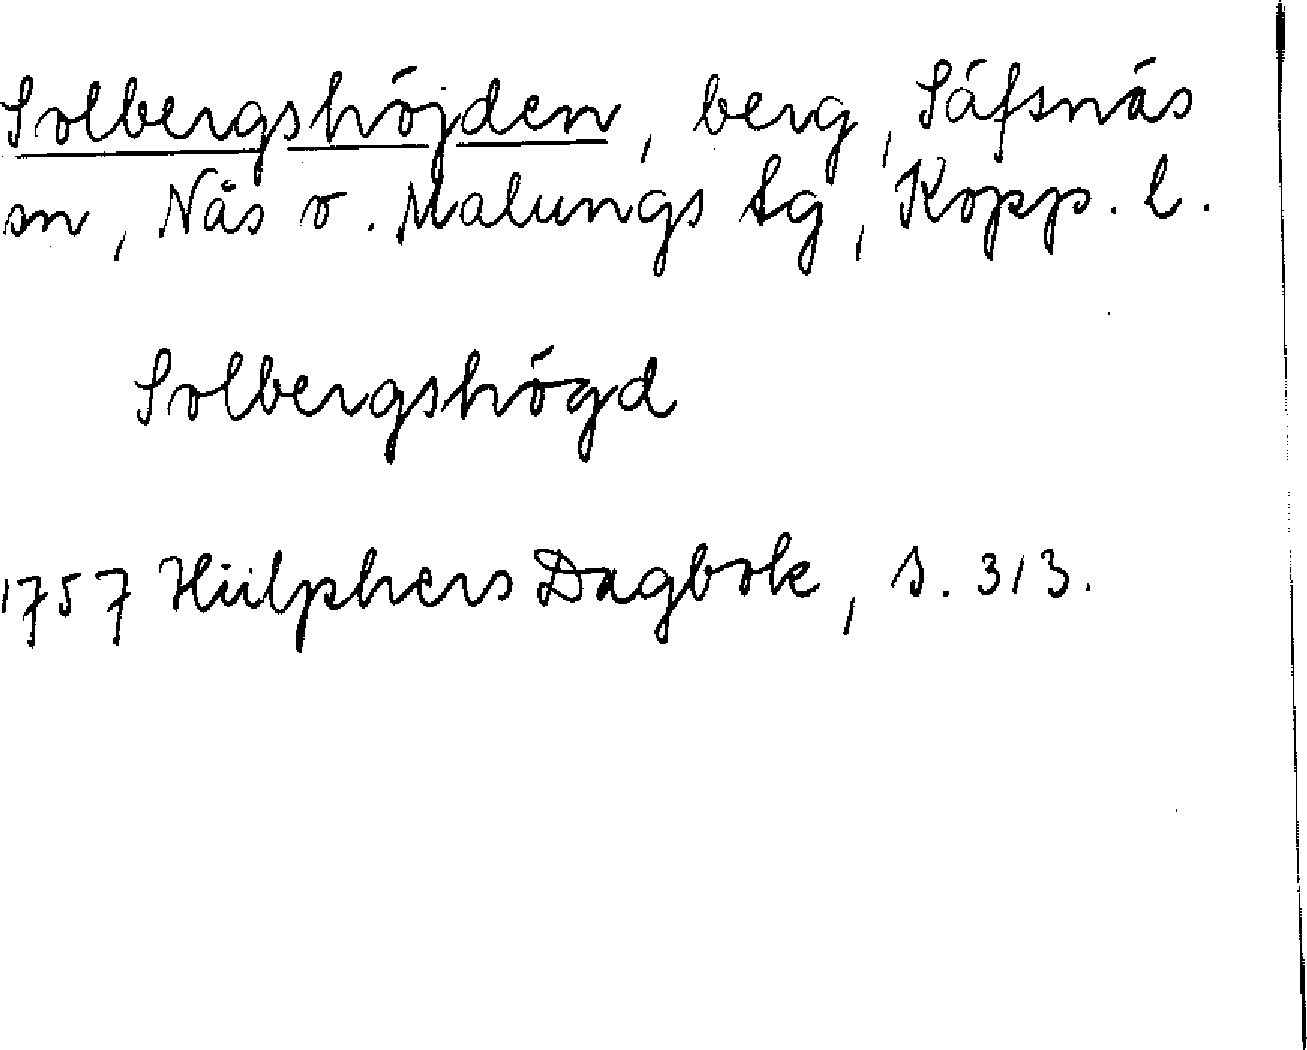 Solbergshöjden, berg, Säfsnäs
sn, Nås o. Malungs tg, Kopp. l.
Solbergshögd
1757 Hülphers Dagbok, s. 313.